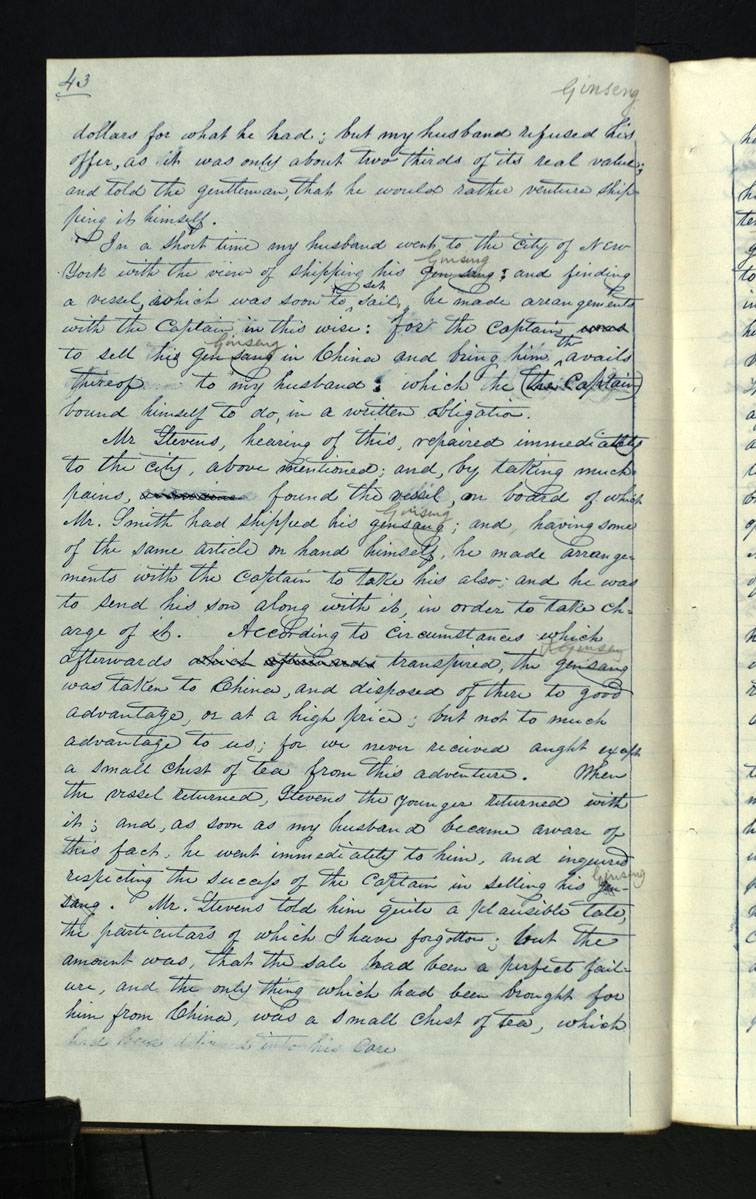 43
Ginseng
dollars for what he had; but my husband refused his
offer, as it was only about two thirds of its real value;
and told the gentleman, that he would rather venture ship-
ping it himself.
In a short time my husband went to the city of New
York with the view of shipping his gen sang Ginseng; and finding
a vessel, which was soon to set sail, he made arrangements
with the Captain in this wise: for the captain was
to sell his gen sang Ginseng in China and bring him th avails
thereof to my husband: which he (the Captain)
bound himself to do, in a written obligation.
Mr Stevens, hearing of this, repaired immediately
to the city, above mentioned; and, by taking much
pains, found the vessel, on board of which
Mr. Smith had shipped his gensang Ginseng; and, having some
of the same article on hand himself, he made arrange-
ments with the Captain to take his also; and he was
to send his son along with it, in order to take ch-
arge of it. According to circumstances which
afterwards which afterwards transpired, the gensang Ginseng
was taken to China, and disposed of there to good
advantage, or at a high price; but not to much
advantage to us; for we never recieved aught except
a small chest of tea from this adventure. When
the vessel returned, Stevens the younger returned with
it; and, as soon as my husband became aware of
this fact, he went immediately to him, and inquired
respecting the success of the Captain in selling his gen- Ginseng
sang. Mr. Stevens told him quite a plausible tale,
the particulars of which I have forgotten; but the
amount was, that the sale had been a perfect fail-
ure, and the only thing which had been brought for
him from China, was a small chest of tea, which
had been into his care